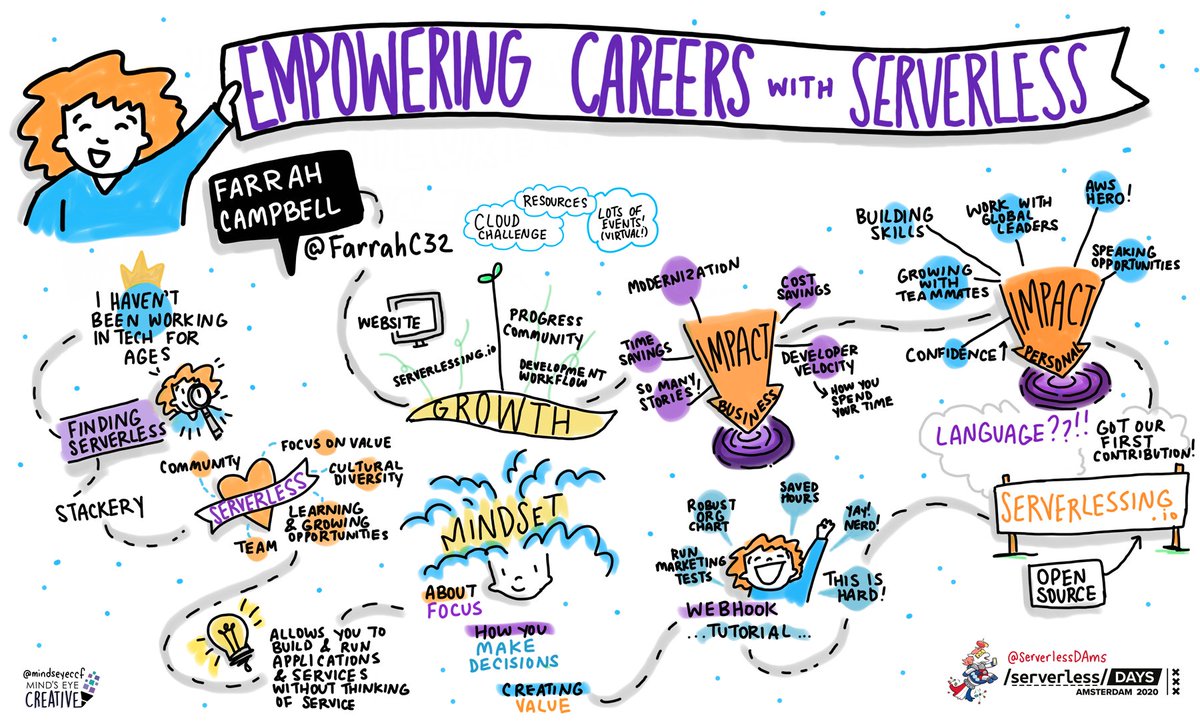 EMPOWERING CAREERS WITH SERVERLESS
FARRAH
CAMPBELL
@FarrahC32
I HAVEN'T
BEEN WORKING
IN TECH FOR
AGES
FINDING
SERVERLESS
STACKERY
COMMUNITY
FOCUS ON VALUE
CULTURAL
DIVERSITY
SERVERLESS
LEARNING
& GROWING
OPPORTUNITIES
TEAM
ALLOWS YOU TO
BUILD & RUN
APPLICATIONS
& SERVICES
WITHOUT THINKING
OF SERVICE
RESOURCES
CLOUD
CHALLENGE
LOTS OF
EVENTS!
(VIRTUAL!)
WEBSITE
SERVERLESSING.io
PROGRESS
COMMUNITY
DEVELOPMENT
WORKFLOW
GROWTH
MINDSET
ABOUT
FOCUS
HOW YOU
MAKE
DECISIONS
CREATING
VALUE
MODERNIZATION
COST
SAVINGS
TIME
SAVINGS
SO MANY
STORIES!
IMPACT
BUSINESS
DEVELOPER
VELOCITY
HOW YOU
SPEND
YOUR TIME
ROBUST
ORG
CHART
SAVED
HOURS
YAY!
NERD!
RUN
MARKETING
TESTS
THIS IS
HARD!
WEBHOOK
...TUTORIAL...
BUILDING
SKILLS
WORK WITH
GLOBAL
LEADERS
AWS
HERO!
GROWING
WITH
TEAMMATES
SPEAKING
OPPORTUNITIES
CONFIDENCE↑
IMPACT
PERSONAL
LANGUAGE??!!
GOT OUR
FIRST
CONTRIBUTION!
SERVERLESSING
.io
OPEN
SOURCE
@mindseyeccf
MIND'S EYE
CREATIVE
@ServerlessDAms
/serverless/DAYS
AMSTERDAM 2020
XXX